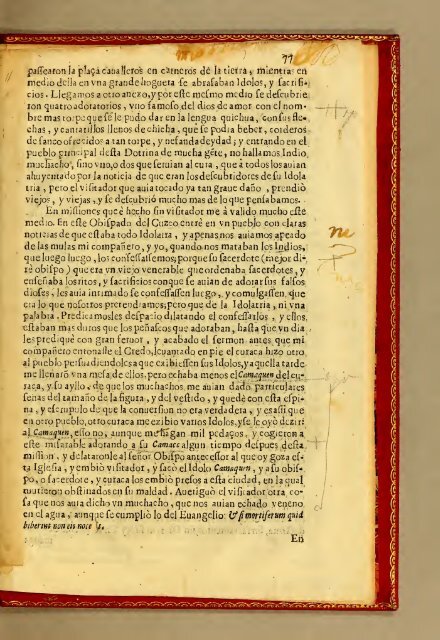 77
passearon la plaça caualleros en carneros de la tierra, mientra en
medio della en vna grande hoguera se abrasaban Idolos, y sacrifi-
cios. Llegamos a otro anexo, y por este mesmo medio se descubrie
ron quatro adoratorios, vno famoso del dios de amor con el nom-
bre mas torpe que se le pudo dar en la lengua quichua, con sus fle-
chas, y cantarillos llenos de chicha, que se podia beber, corderos
de sanco ofrecidos a tan torpe, y nefanda deydad; y entrando en el
pueblo principal desta Dotrina de mucha gẽte, no hallamos Indio
muchacho, sino vno, o dos que seruian al cura, que à todos los auian
ahuyentado por la noticia de que eran los descubridores de su Idola
tria, pero el visitador que auia tocado ya tan graue daño, prendiò
viejos, y viejas, y se descubriò mucho mas de lo que pensabamos.
En missiones que è hecho sin visitador me à valido mucho este
medio. En este Obispado del Cuzco entrè en vn pueblo con claras
noticias de que estaba todo Idolatra, y apenas nos auiamos apeado
de las mulas mi compañero, y yo, quando nos mataban los Indios,
que luego luego, los confessassemos; porque su sacerdote (mejor di-
rè obispo) que era vn viejo venerable que ordenaba sacerdotes, y
enseñaba los ritos, y sacrificios con que se auian de adorar sus falsos
dioses, les auia intimado se confessassen luego, y comulgassen, que
era lo que nosotros pretendiamos; pero que de la Idolatria, ni vna
palabra. Predicamosles despacio dilatando el confessarlos, y ellos,
estaban mas duros que los peñascos que adoraban, hasta que vn dia
les prediquè con gran feruor, y acabado el sermon antes que mi
compañero entonasse el Credo, leuantado en pie el curaca hizo otro
al pueblo persuadiendoles a que exibiessen sus Idolos, y aquella tarde
me llenarõ vna mesa de ellos, pero echaba menos el Camaquen del cu-
raca, y su ayllo, de que los muchachos me auian dado particulares
señas del tamaño de la figura, y del vestido, y quedè con esta espi-
na, y escrupulo de que la conuersion no era verdadera, y es assi que
en otro pueblo, otro curaca me exibio varios Idolos, y se le oyò dezir:
al Camaquen, esso no, aunque me hagan mil pedaços, y cogieron a
este miserable adorando a su Camaca algun tiempo despues desta
mission, y delataronle al señor Obispo antecessor al que oy goza es-
ta Iglesia, y embiò visitador, y sacò el Idolo Camaquen, y a su obis-
po, o sacerdote, y curaca los embiò presos a esta ciudad, en la qual
murieron obstinados en su maldad. Aueriguò el visitador otra co-
sa que nos auia dicho vn muchacho, que nos auian echado veneno
en el agua, aunque se cumpliò lo del Euangelio: & si mortiferum quid
biberint non eis nocebit.
En